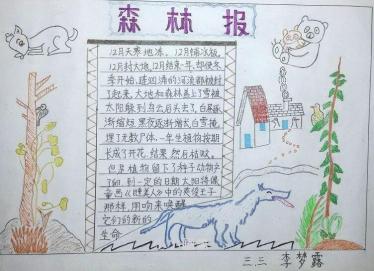 森林报
12月天寒地冻。12月铺冰板,
12月封大地,12月结束一年,却使冬
季开始,链洄涌的河流都被封
了起来,大地和森林盖上了雪被
太阳躲到乌云后头去了。白昼逐
渐缩短,黑夜逐渐增长。白雪掩
埋了无数尸体,一年生植物按期
长成了开花,结果,然后枯败。
但是植物留下了种子动物产
了卵,到一定的日期太阳将像
童话《睡美人》中的英俊王子
那样,用吻来唤醒
它们的新的
生命
三.三 李梦露